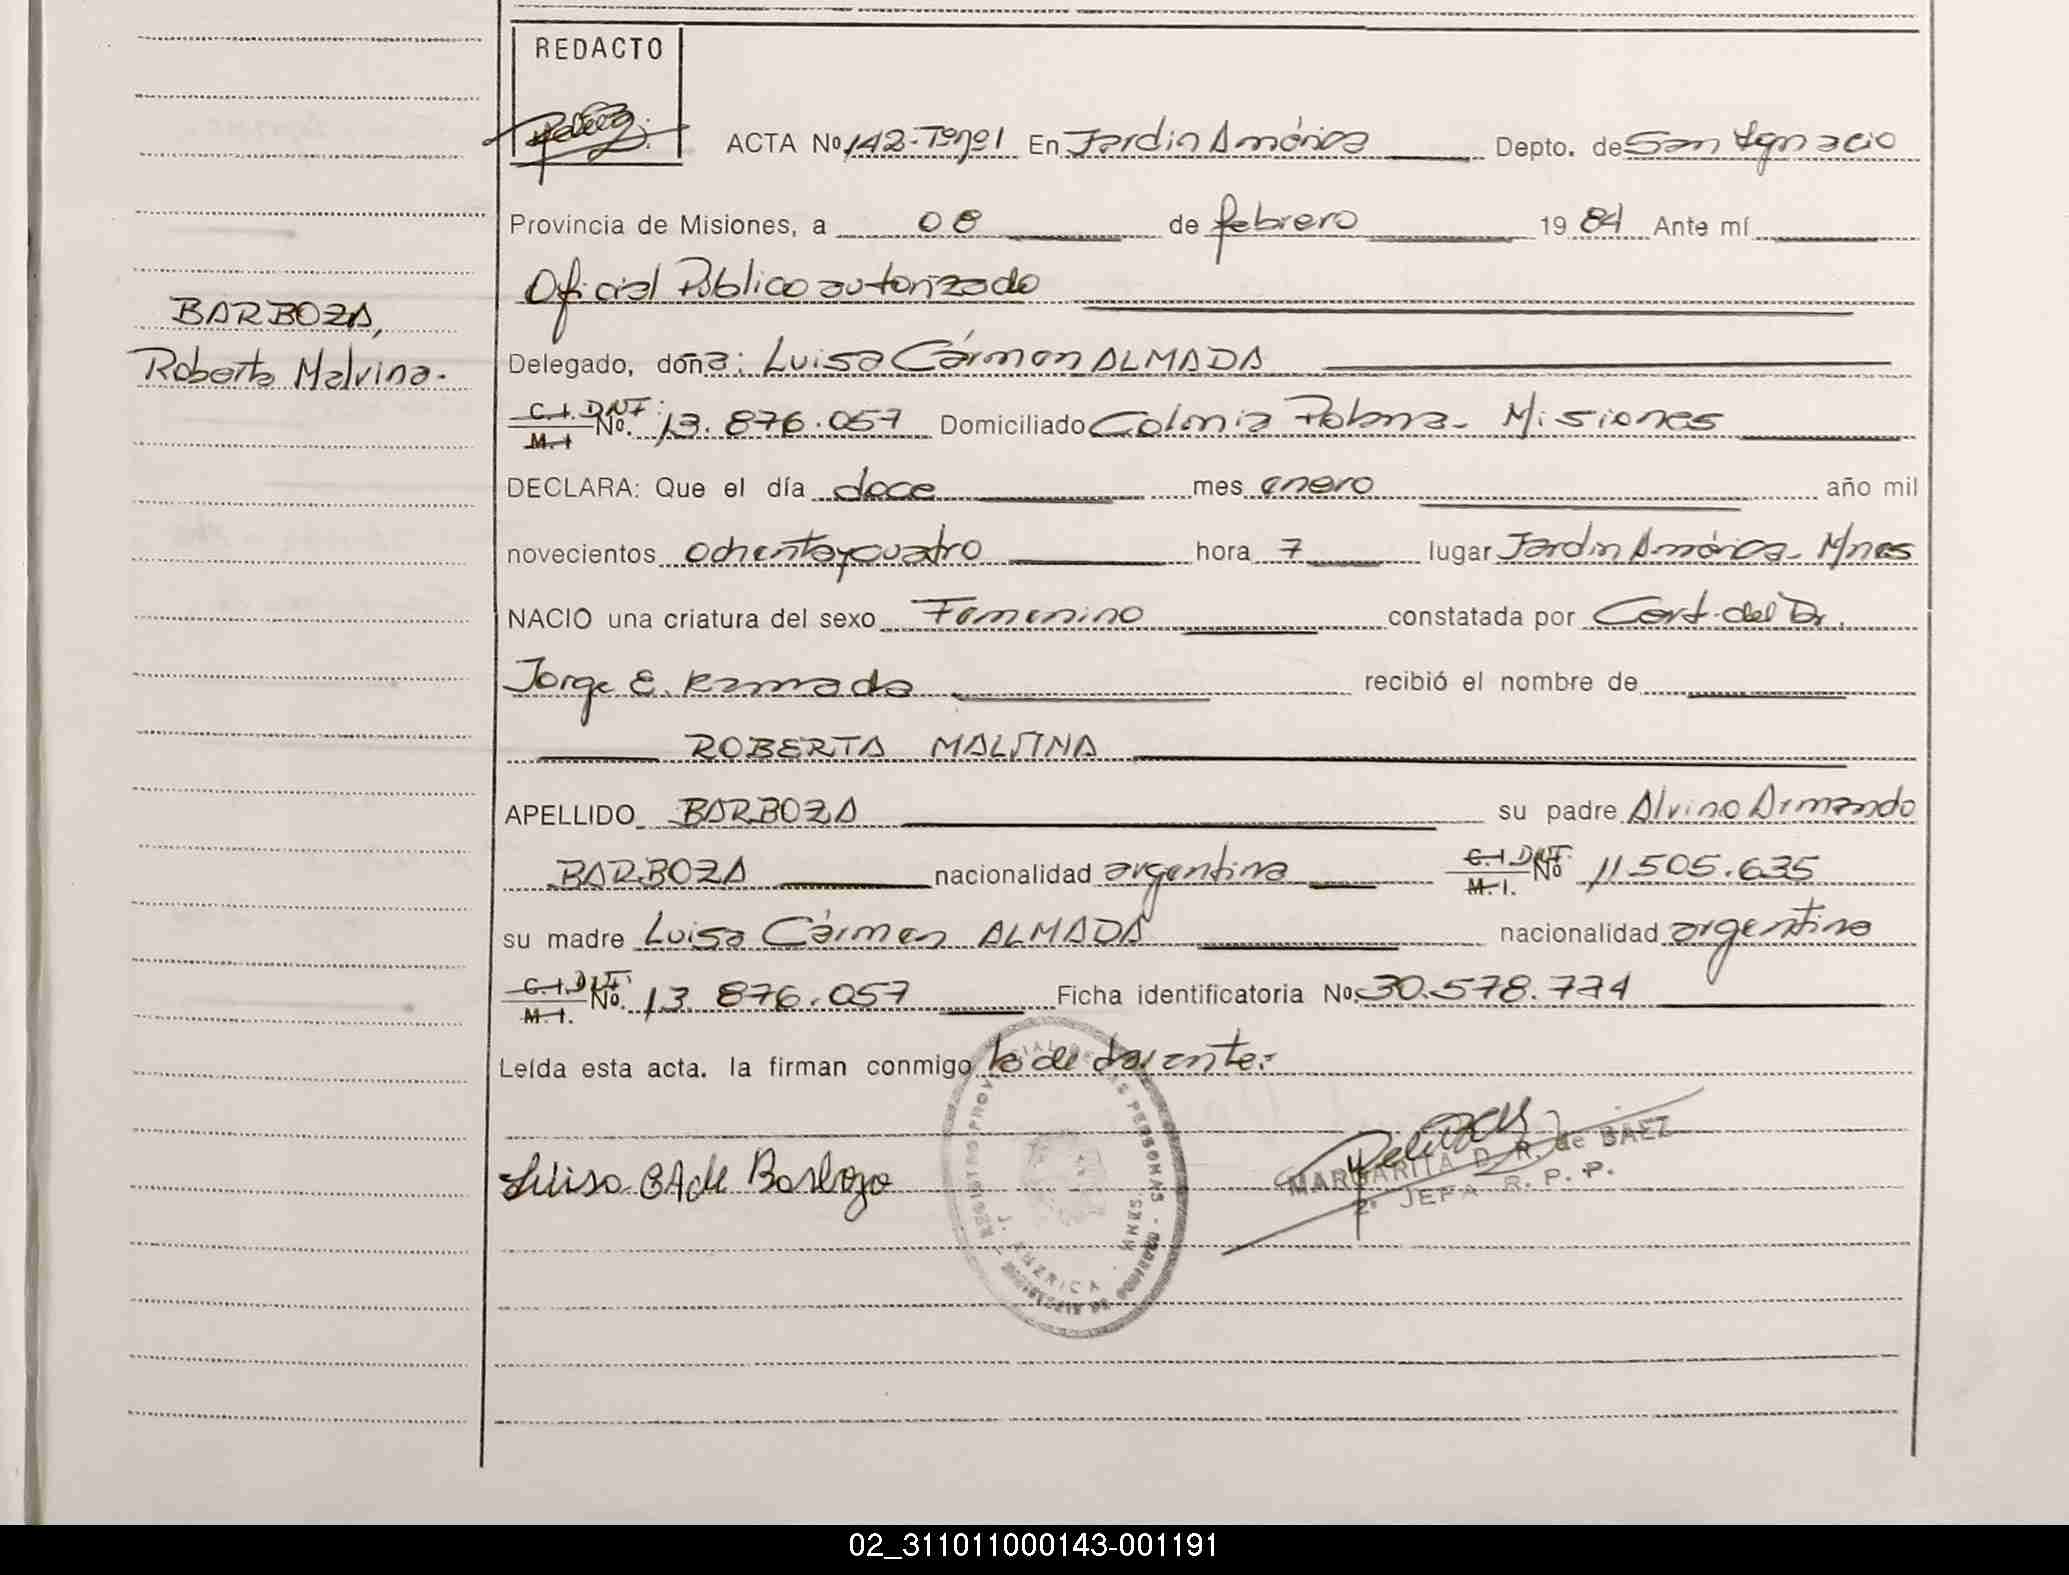 REDACTO
ACTA Nº 142-Tºnº1 En Jardin América Depto. de San Ignacio
Provincia de Misiones, a 08 de febrero 19 84 Ante mí
Oficial Público autorizado
BARBOZA,
Roberta Malvina.
Delegado, doña: Luisa Cármen ALMADA
C.I. DNI: M.I No. 13.876.057 Domiciliado Colonia Polana - Misiones
DECLARA: Que el día doce mes enero año mil
novecientos ochentaycuatro hora 7 lugar Jardin América - Mnes
NACIO una criatura del sexo Femenino constatada por Cert. del Dr.
Jorge E. recibió el nombre de
ROBERTA MALVINA
APELLIDO BARBOZA su padre Alvino Armando
BARBOZA nacionalidad argentina C.I DNI. M.I. Nº 11.505.635
su madre Luisa Cármen ALMADA nacionalidad argentina
C.I. DNI. M.I. Nº. 13.876.057 Ficha identificatoria No. 30.578.774
Leída esta acta. la firman conmigo la declarante:
Luisa CA de Barboza
REGISTRO PROVINCIAL DE LAS PERSONAS
J. AMERICA - MNES.
MARGARITA D. R. de BAEZ
2ª JEFA R. P. P.
02_311011000143-001191